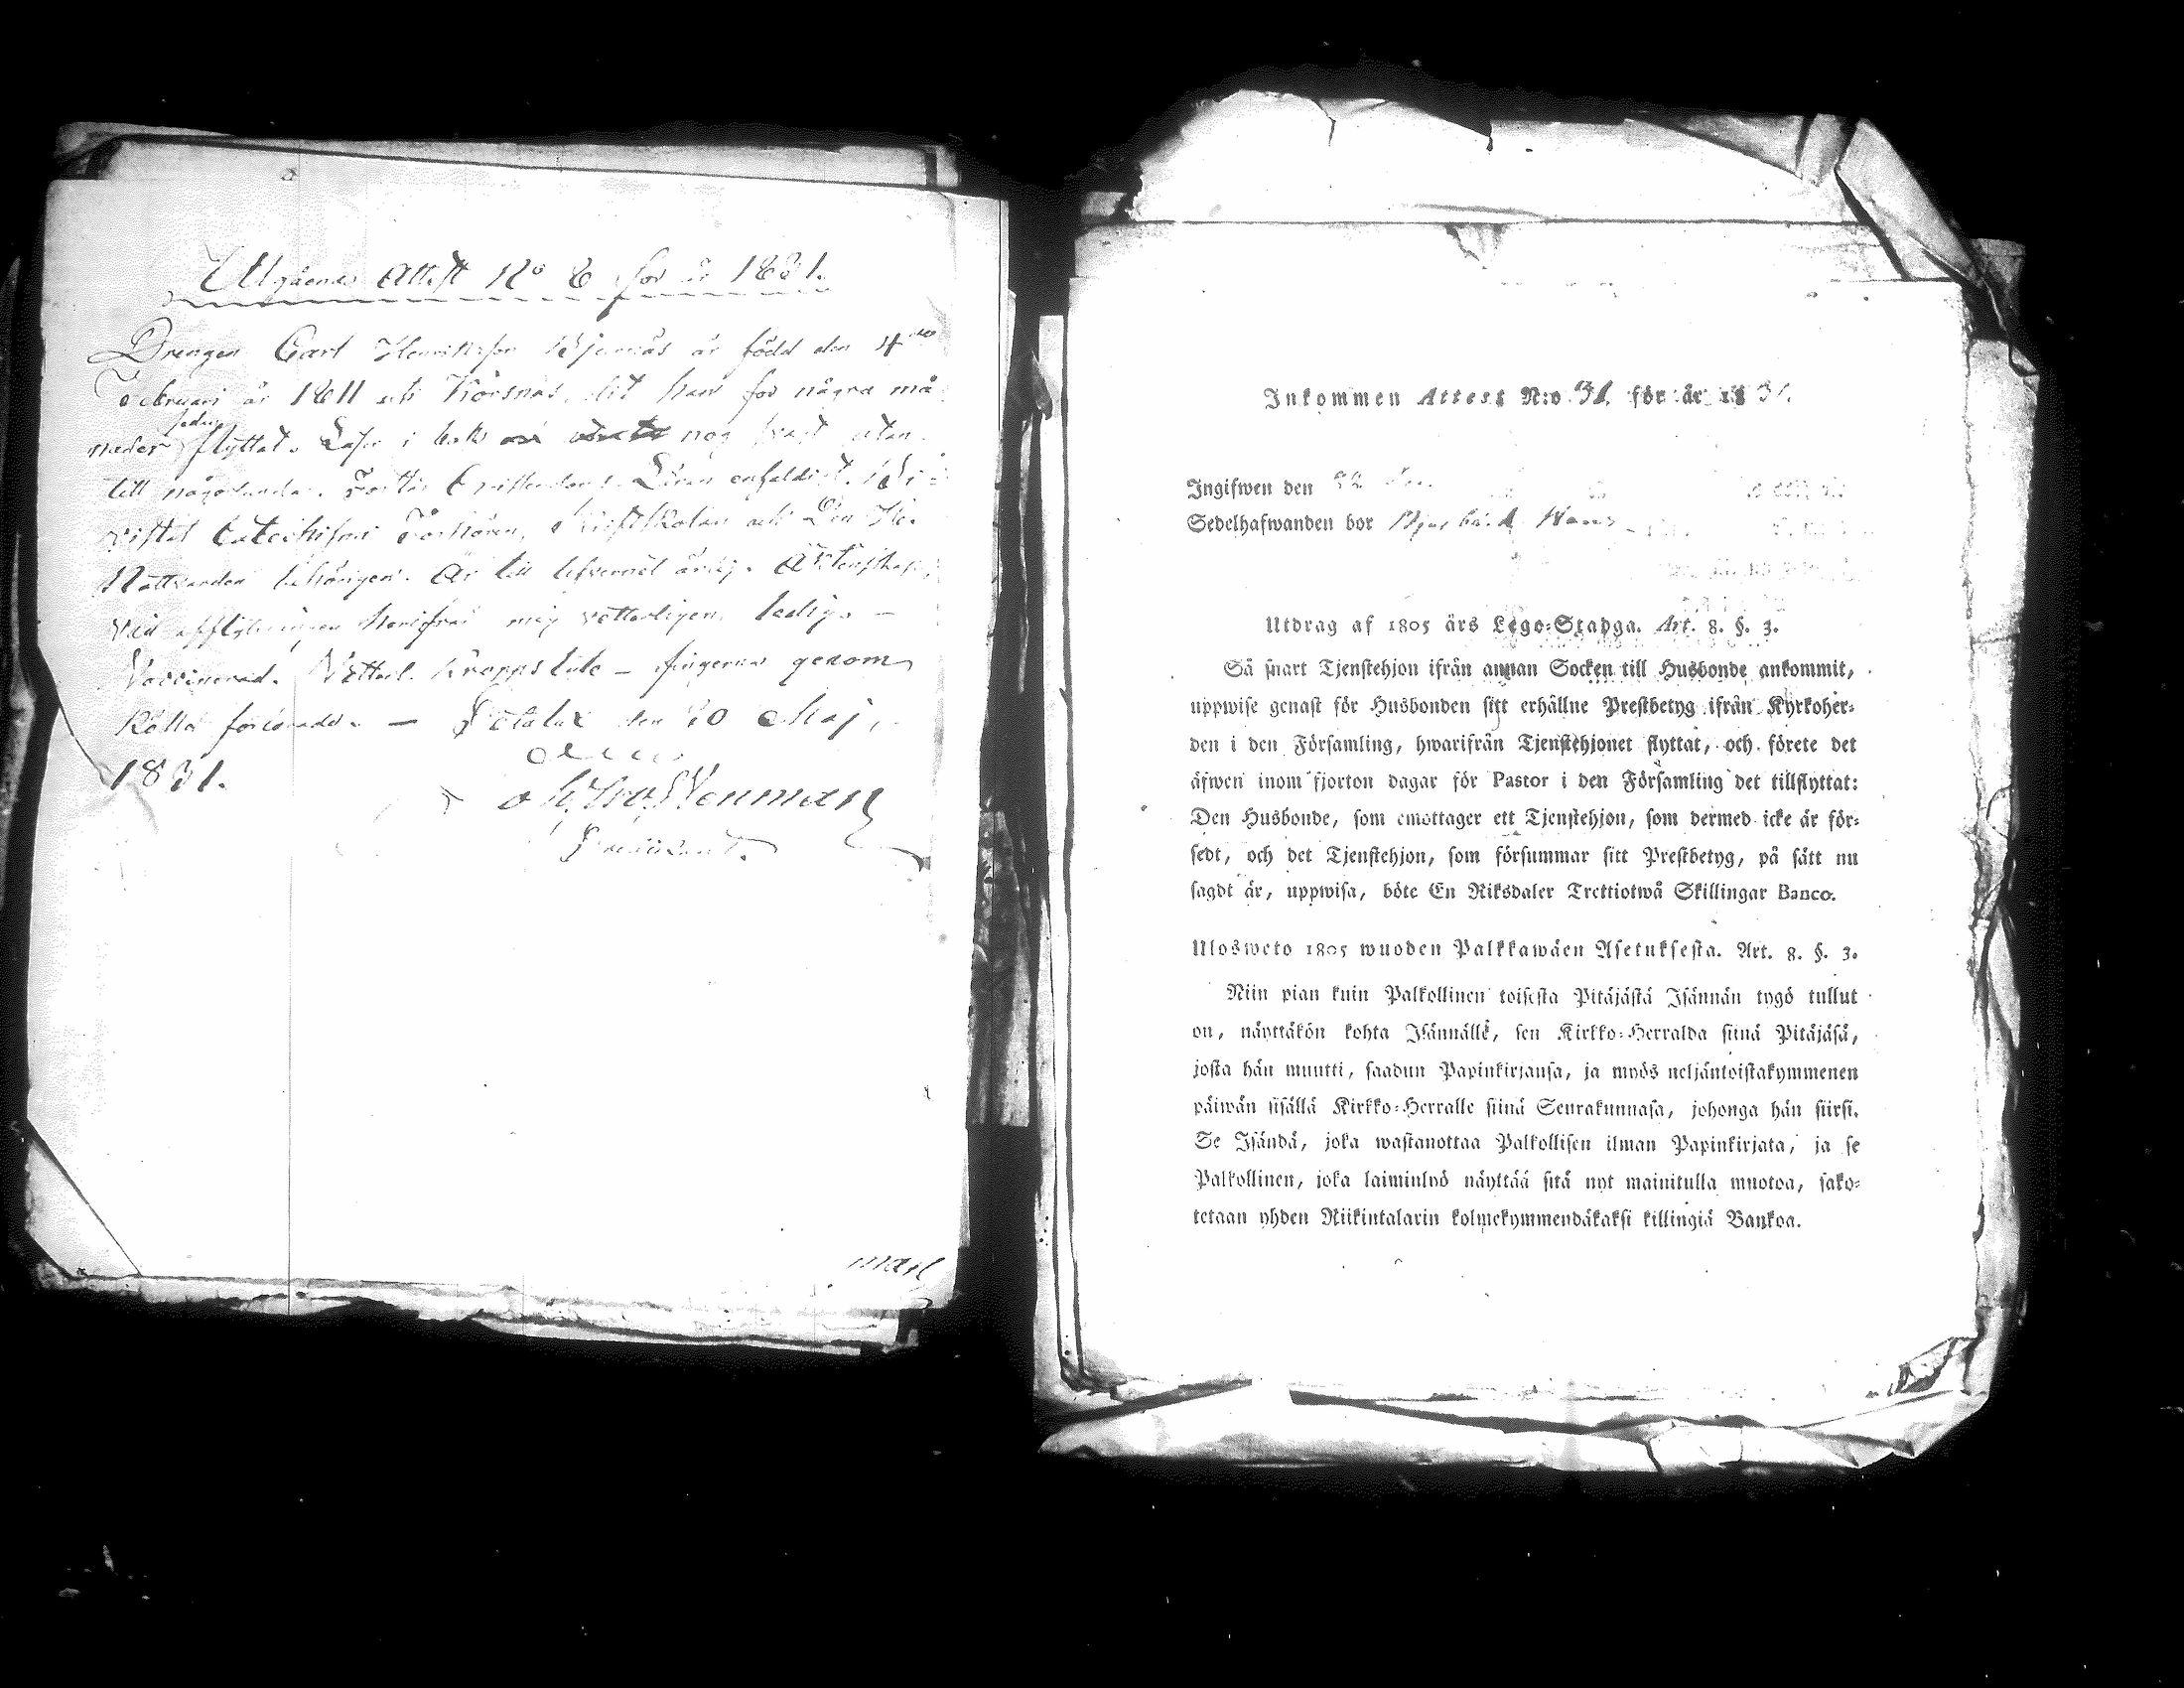 Utgående Attest No 6 för år 1831.
Drengen Carl Henriksson Bjurnäs är född den 4de
Februari år 1811 uti Korsnäs, dit han för några må-
nader sedan flyttat. Läser i bok nog svagt utan
till någorlunda. Förstår Christendoms Läran enfaldigt. Bi-
vistat Catechismi Förhören, Skriftskolan och Den H.
Nattvarden behörigen. Är till lefvernet ärlig. Äktenskap,
vid afflyttningen härifrån mig vetterligen, ledig. —
Vaccinerad. Vetterl. kroppslyte — fingrarna genom
köld förlorade. — Petalax den 20 Maj,
1831.
Stenman
Predikant.
man
Inkommen Attest N:o 31. för år 18 31.
Ingifwen den 22
Sedelhafwanden bor
Utdrag af 1805 års Lego-Stadga. Art. 8. §. 3.
Så snart Tjenstehjon ifrån annan Socken till Husbonde ankommit,
uppwise genast för Husbonden sitt erhållne Prestbetyg ifrån Kyrkoher-
den i den Församling, hwarifrån Tjenstehjonet flyttat, och förete det
äfwen inom fjorton dagar för Pastor i den Församling det tillflyttat:
Den Husbonde, som emottager ett Tjenstehjon, som dermed icke är för-
sedt, och det Tjenstehjon, som försummar sitt Prestbetyg, på sätt nu
sagdt är, uppwisa, böte En Riksdaler Trettiotwå Skillingar Banco.
Ulosweto 1805 wuoden Palkkawäen Asetuksesta. Art. 8. §. 3.
Niin pian kuin Palkollinen toisesta Pitäjästä Isännän tygö tullut
on, näyttäkön kohta Isännälle, sen Kirkko-Herralda siinä Pitäjäsä,
josta hän muutti, saadun Papinkirjansa, ja myös neljäntoistakymmenen
päiwän sisällä Kirkko-Herralle siinä Seurakunnasa, johonga hän siirsi.
Se Isändä, joka wastanottaa Palkollisen ilman Papinkirjata, ja se
Palkollinen, joka laiminlyö näyltää sitä nyt mainitulla muotoa, sako-
tetaan yhden Riikintalarin kolmekymmendäkaksi killingiä Bankoa.